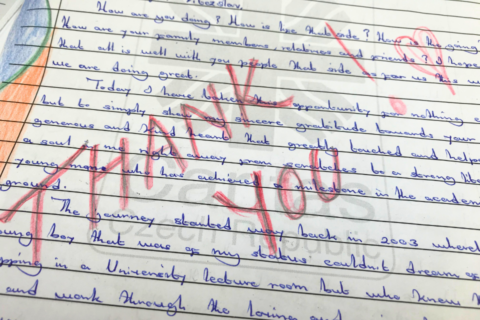 How are you doing? How is life that side? How is the going?
How are your family members, relatives and friends? I hope
that all is well with you people that side as for us this
we are doing great.
Today I have taken this opportunity for nothing
but to simply show my sincere gratitude towards your
generous and kind hearts that greatly touched and helped
a soul me right away from to a
young man who has achieved a milestone in the academic
ground.
The journey started way back in 2003 where
young boy that was of my status couldn't dream of
in a University lecture room but who knew
and work through the loving and
THANK YOU!
Caritas
Czech Republic